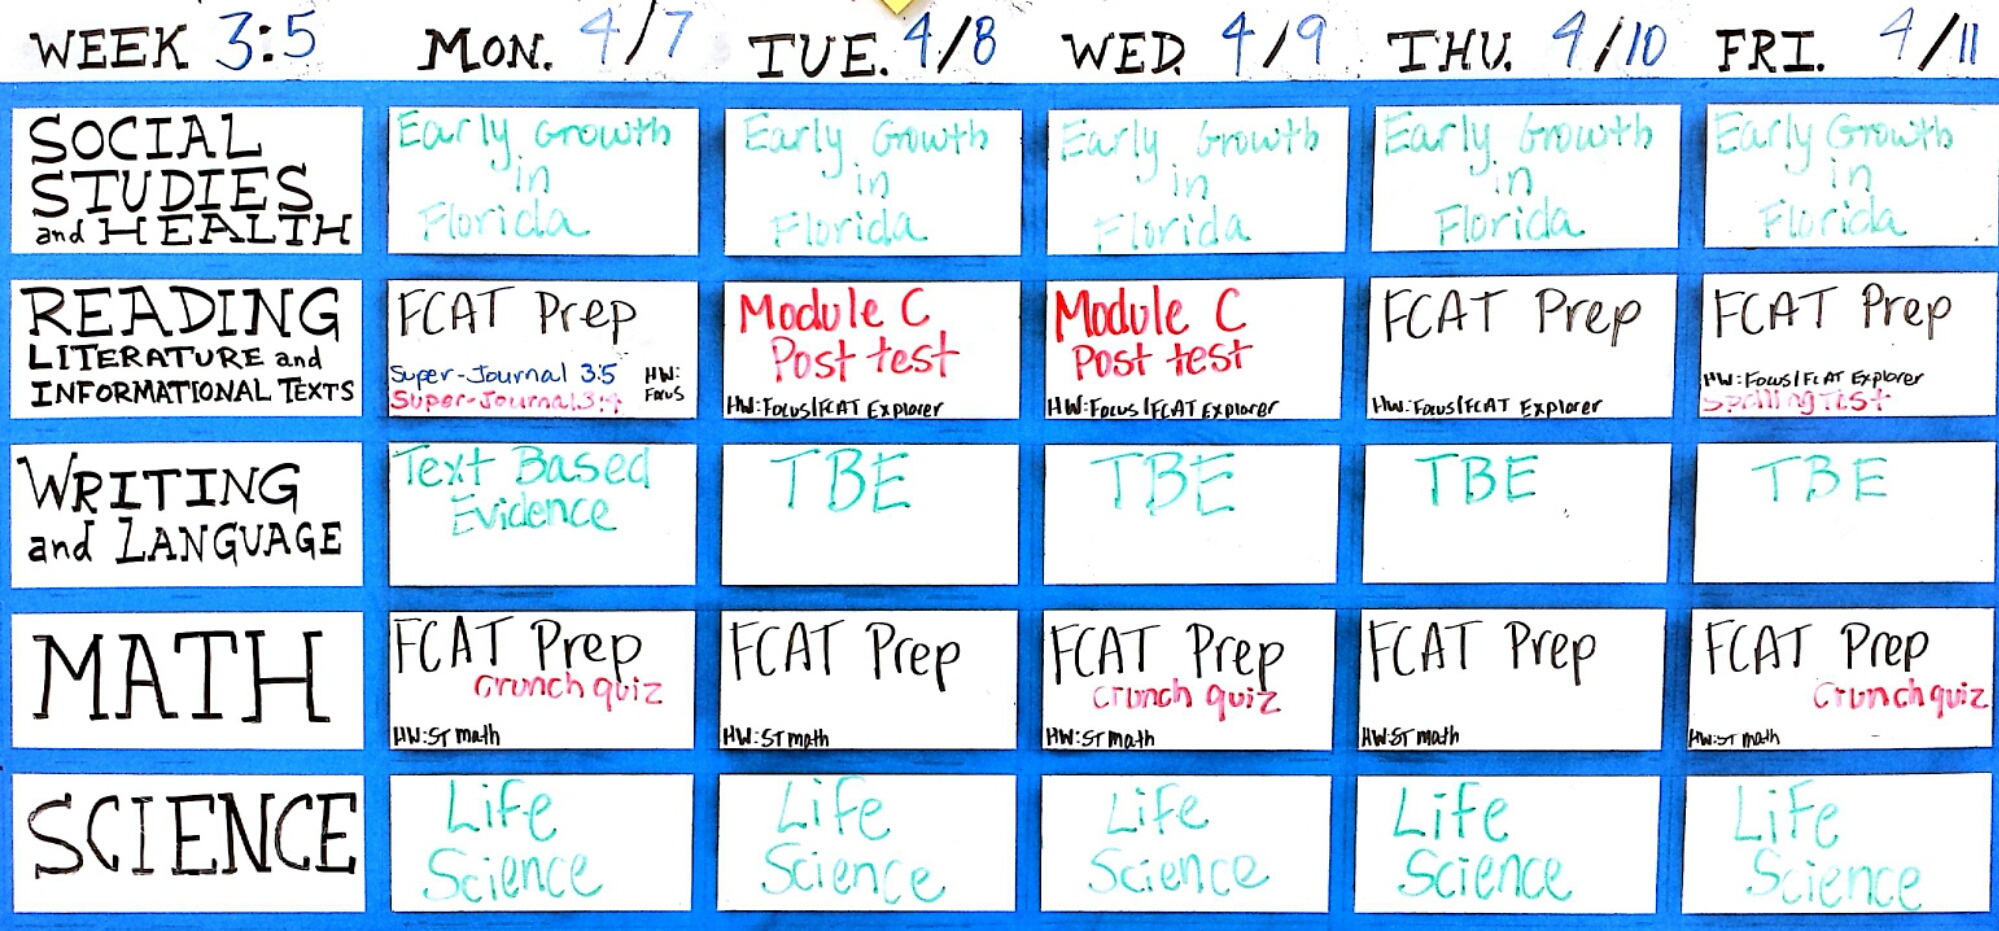 WEEK 3:5 MON. 4/7 TUE. 4/8 WED. 4/9 THU. 4/10 FRI. 4/11
SOCIAL
STUDIES
and HEALTH
Early Growth
in
Florida
Early Growth
in
Florida
Early Growth
in
Florida
Early Growth
in
Florida
Early Growth
in
Florida
READING
LITERATURE and
INFORMATIONAL TEXTS
FCAT Prep
Super-Journal 3:5 HW:
Super-Journal 3:4 Focus
Module C
Post test
HW: Focus/FCAT Explorer
Module C
Post test
HW: Focus/FCAT Explorer
FCAT Prep
HW: Focus/FCAT Explorer
FCAT Prep
HW: Focus/FCAT Explorer
Spelling Test
WRITING
and LANGUAGE
Text Based
Evidence
TBE
TBE
TBE
TBE
MATH
FCAT Prep
Crunch quiz
HW: ST math
FCAT Prep
HW: ST math
FCAT Prep
Crunch quiz
HW: ST math
FCAT Prep
HW: ST math
FCAT Prep
Crunch quiz
HW: ST math
SCIENCE
Life
Science
Life
Science
Life
Science
Life
Science
Life
Science